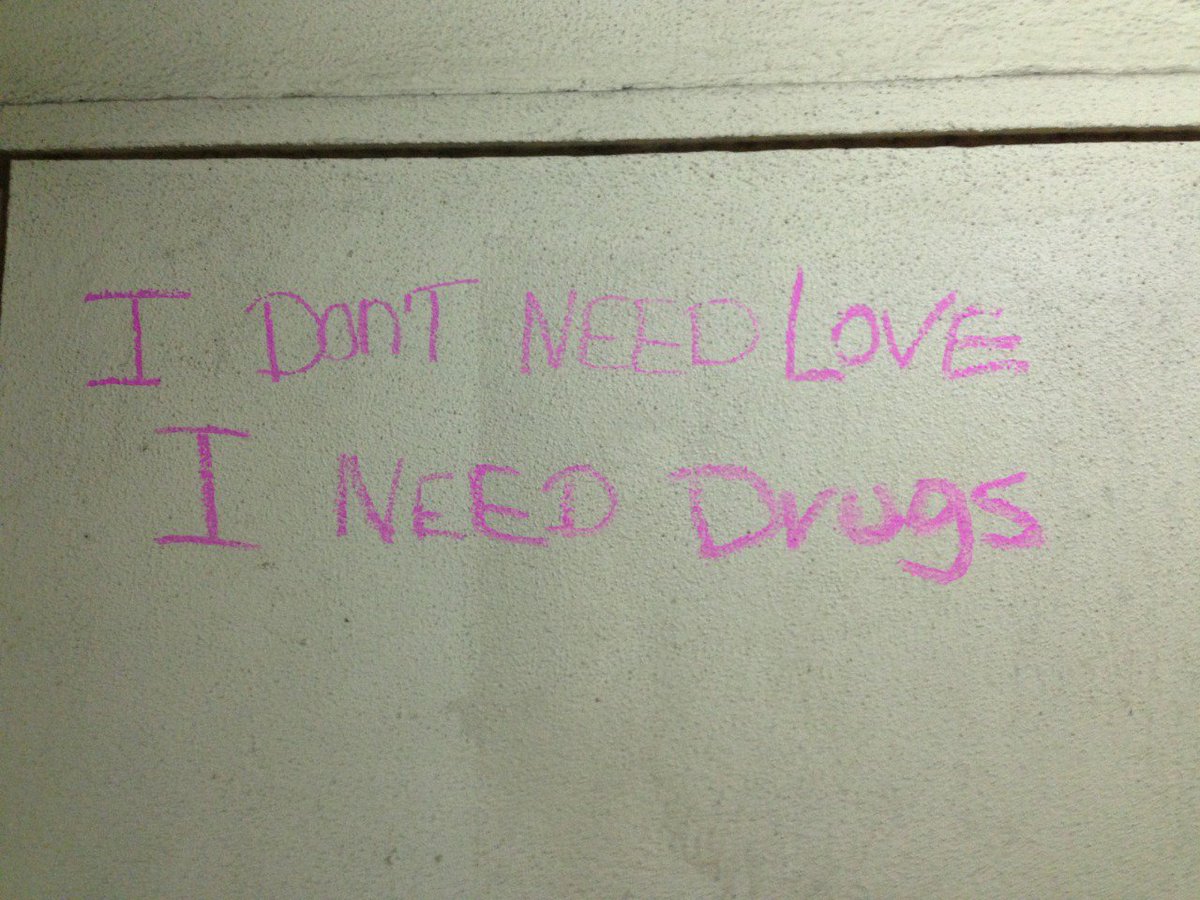 I DON'T NEED LOVE
I NEED Drugs